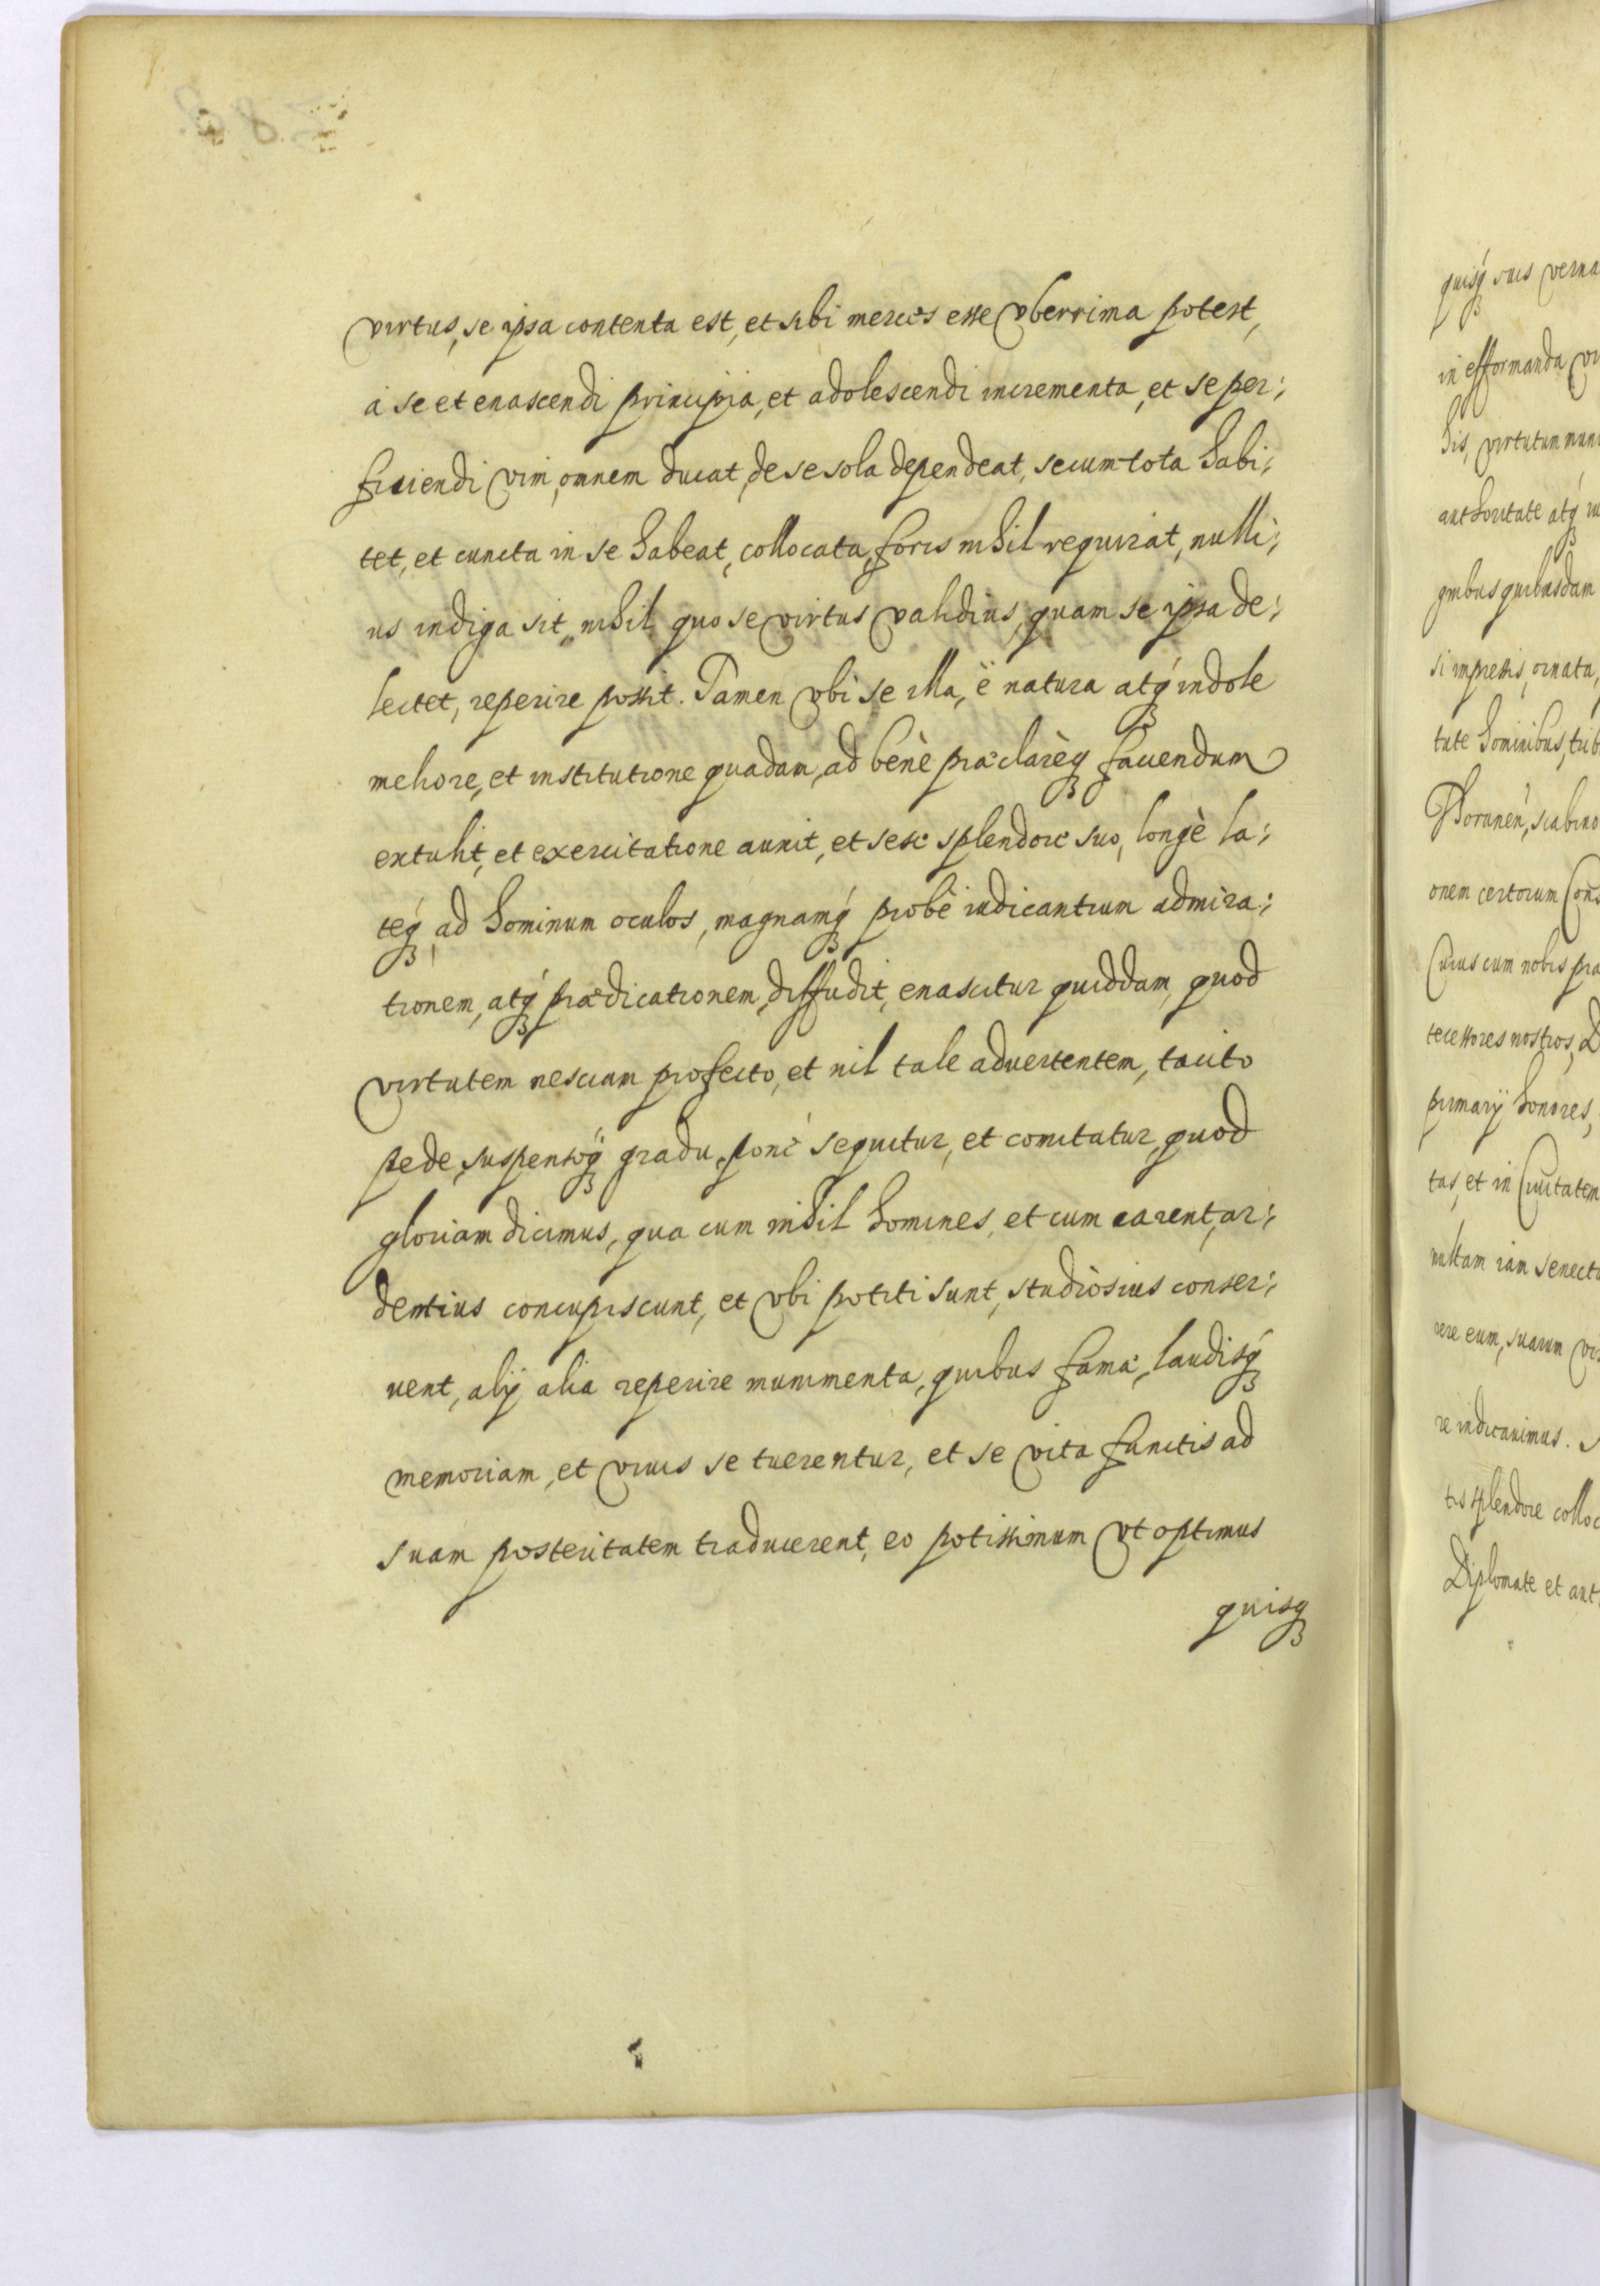 virtus, se ipsa contenta est, et sibi merces esse vberrima potest,
à se et enascendi principia, et adolescendi incrementa, et se per:
ficiendi vim, omnem ducat, de se sola dependeat, secum tota habi:
tet, et cuncta in se habeat, collocata, foris nihil requirat, nulli:
us indiga sit, nihil quo se virtus validius, quam se ipsa de:
lectet, reperire possit. Tamen vbi se illa, è natura atq indole
meliore, et institutione quadam, ad benè præclarèq faciendum
extulit, et exercitatione acuit, et sese splendore suo, longè la:
teq, ad hominum oculos, magnamq probè iudicantium admira:
tionem, atq prædicationem, diffudit, enascitur quiddam, quod
virtutem nesciam profecto, et nil tale aduertentem, tacito
pede, suspensoq gradu, ponè sequitur, et comitatur, quod
gloriam dicimus, qua cum nihil homines, et cum carent, ar:
dentius concupiscunt, et vbi potiti sunt, studiosius conser:
uent, alij alia reperire munimenta, quibus famæ, laudisq
memoriam, et viuis se tuerentur, et se vita functis ad
suam posteritatem traducerent, eo potissimum vt optimus
quisq
quisq suis verna
in efformanda vi
his, virtutum mun
authoritate atq
gnibus quibusdam
si impressis, ornata,
tute hominibus, trib
Thorunen, scabino
onem certorum Cons
Cuius cum nobis pra
tecessores nostros, D
primarij honores,
tas, et in Ciuitatem
multam iam senectu
rere eum, suarum vir
re indicauimus.
tis splendore colloc
Diplomate et aut